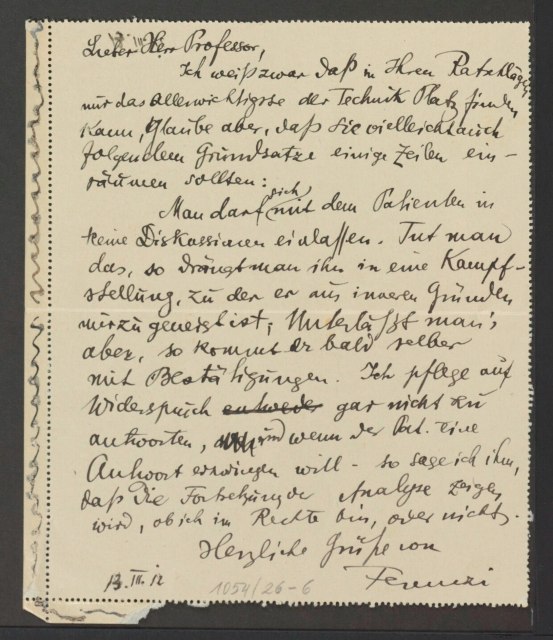 Lieber Herr Professor,
Ich weiß zwar daß in Ihren Ratschlägen
nur das Allerwichtigste der Technik Platz finden
kann, Glaube aber, daß Sie vielleicht auch
folgendem Grundsatze einige Zeilen ein-
räumen sollten:
Man darf sich mit dem Patienten in
keine Diskussionen einlassen. Tut man
das, so drängt man ihn in eine Kampf-
stellung, zu der er aus inneren Gründen
nur zu geneigt ist; Unterläßt man's
aber, so kommt er bald selber
mit Bestätigungen. Ich pflege auf
Widerspruch entweder gar nicht zu
antworten, und wenn der Pat. eine
Antwort erzwingen will - so sage ich ihm,
daß die Fortsetzung der Analyse zeigen
wird, ob ich im Rechte bin, oder nicht.
Herzliche Grüße von
Ferenczi
13. III. 12
1054/26-6